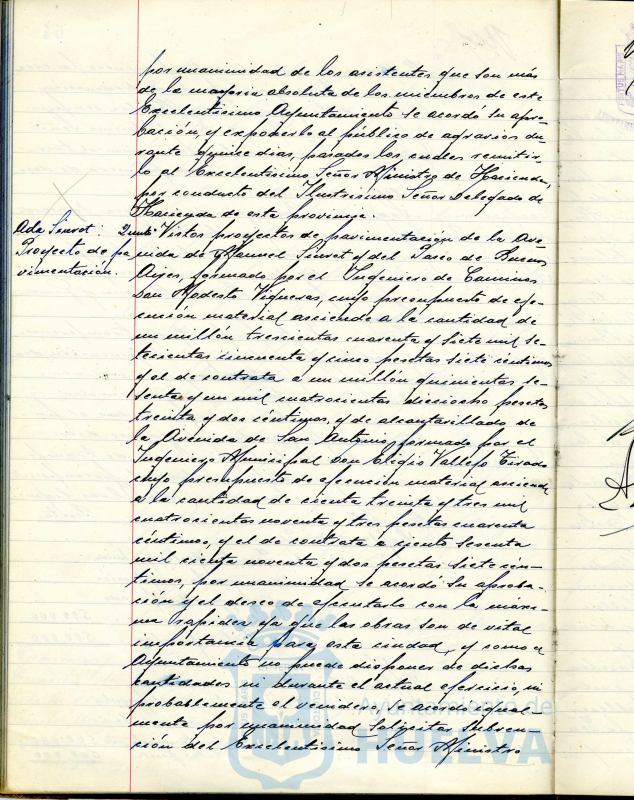 por unanimidad de los asistentes que son más
de la mayoria absoluta de los miembros de este
Excelentísimo Ayuntamiento se acordó su apro-
bación, y exponerlo al público de agravios du-
rante quince dias, pasados los cuales remitir-
lo al Excelentísimo Señor Ministro de Hacienda,
por conducto del Ilustrisimo Señor Delegado de
Hacienda de esta provincia.
Ada Siurot.
Proyecto de pa
vimentación.
Vistos proyectos de pavimentación de la Ave-
nida de Manuel Siurot y del Paseo de Buenos
Aires, formado por el Ingeniero de Caminos
Don Modesto Vigueras, cuyo presupuesto de eje-
cución material asciende a la cantidad de
un millón trescientas cuarenta y siete mil se-
tecientas cincuenta y cinco pesetas siete céntimos
y el de contrata a un millón quinientas se-
senta y un mil cuatrocientas dieciocho pesetas
treinta y dos céntimos, y de alcantarillado de
la Avenida de San Antonio, formado por el
Ingeniero Municipal Don Eligio Vallejo Tirado
cuyo presupuesto de ejecución material asciende
a la cantidad de cienta treinta y tres mil
cuatrocientas noventa y tres pesetas cuarenta
céntimos, y el de contrata a ciento sesenta
mil cienta noventa y dos pesetas siete cén-
timos, por unanimidad se acordó su aproba-
ción y el deseo de ejecutarlo con la máxi-
ma rapidez ya que las obras son de vital
importancia para esta ciudad, y como el
Ayuntamiento no puede disponer de dichas
cantidades ni durante el actual ejercicio, ni
probablemente el venidero, se acordó igual-
mente por unanimidad solicitar subven-
ción del Excelentísimo Señor Ministro
Ayuntamiento de
HUELVA